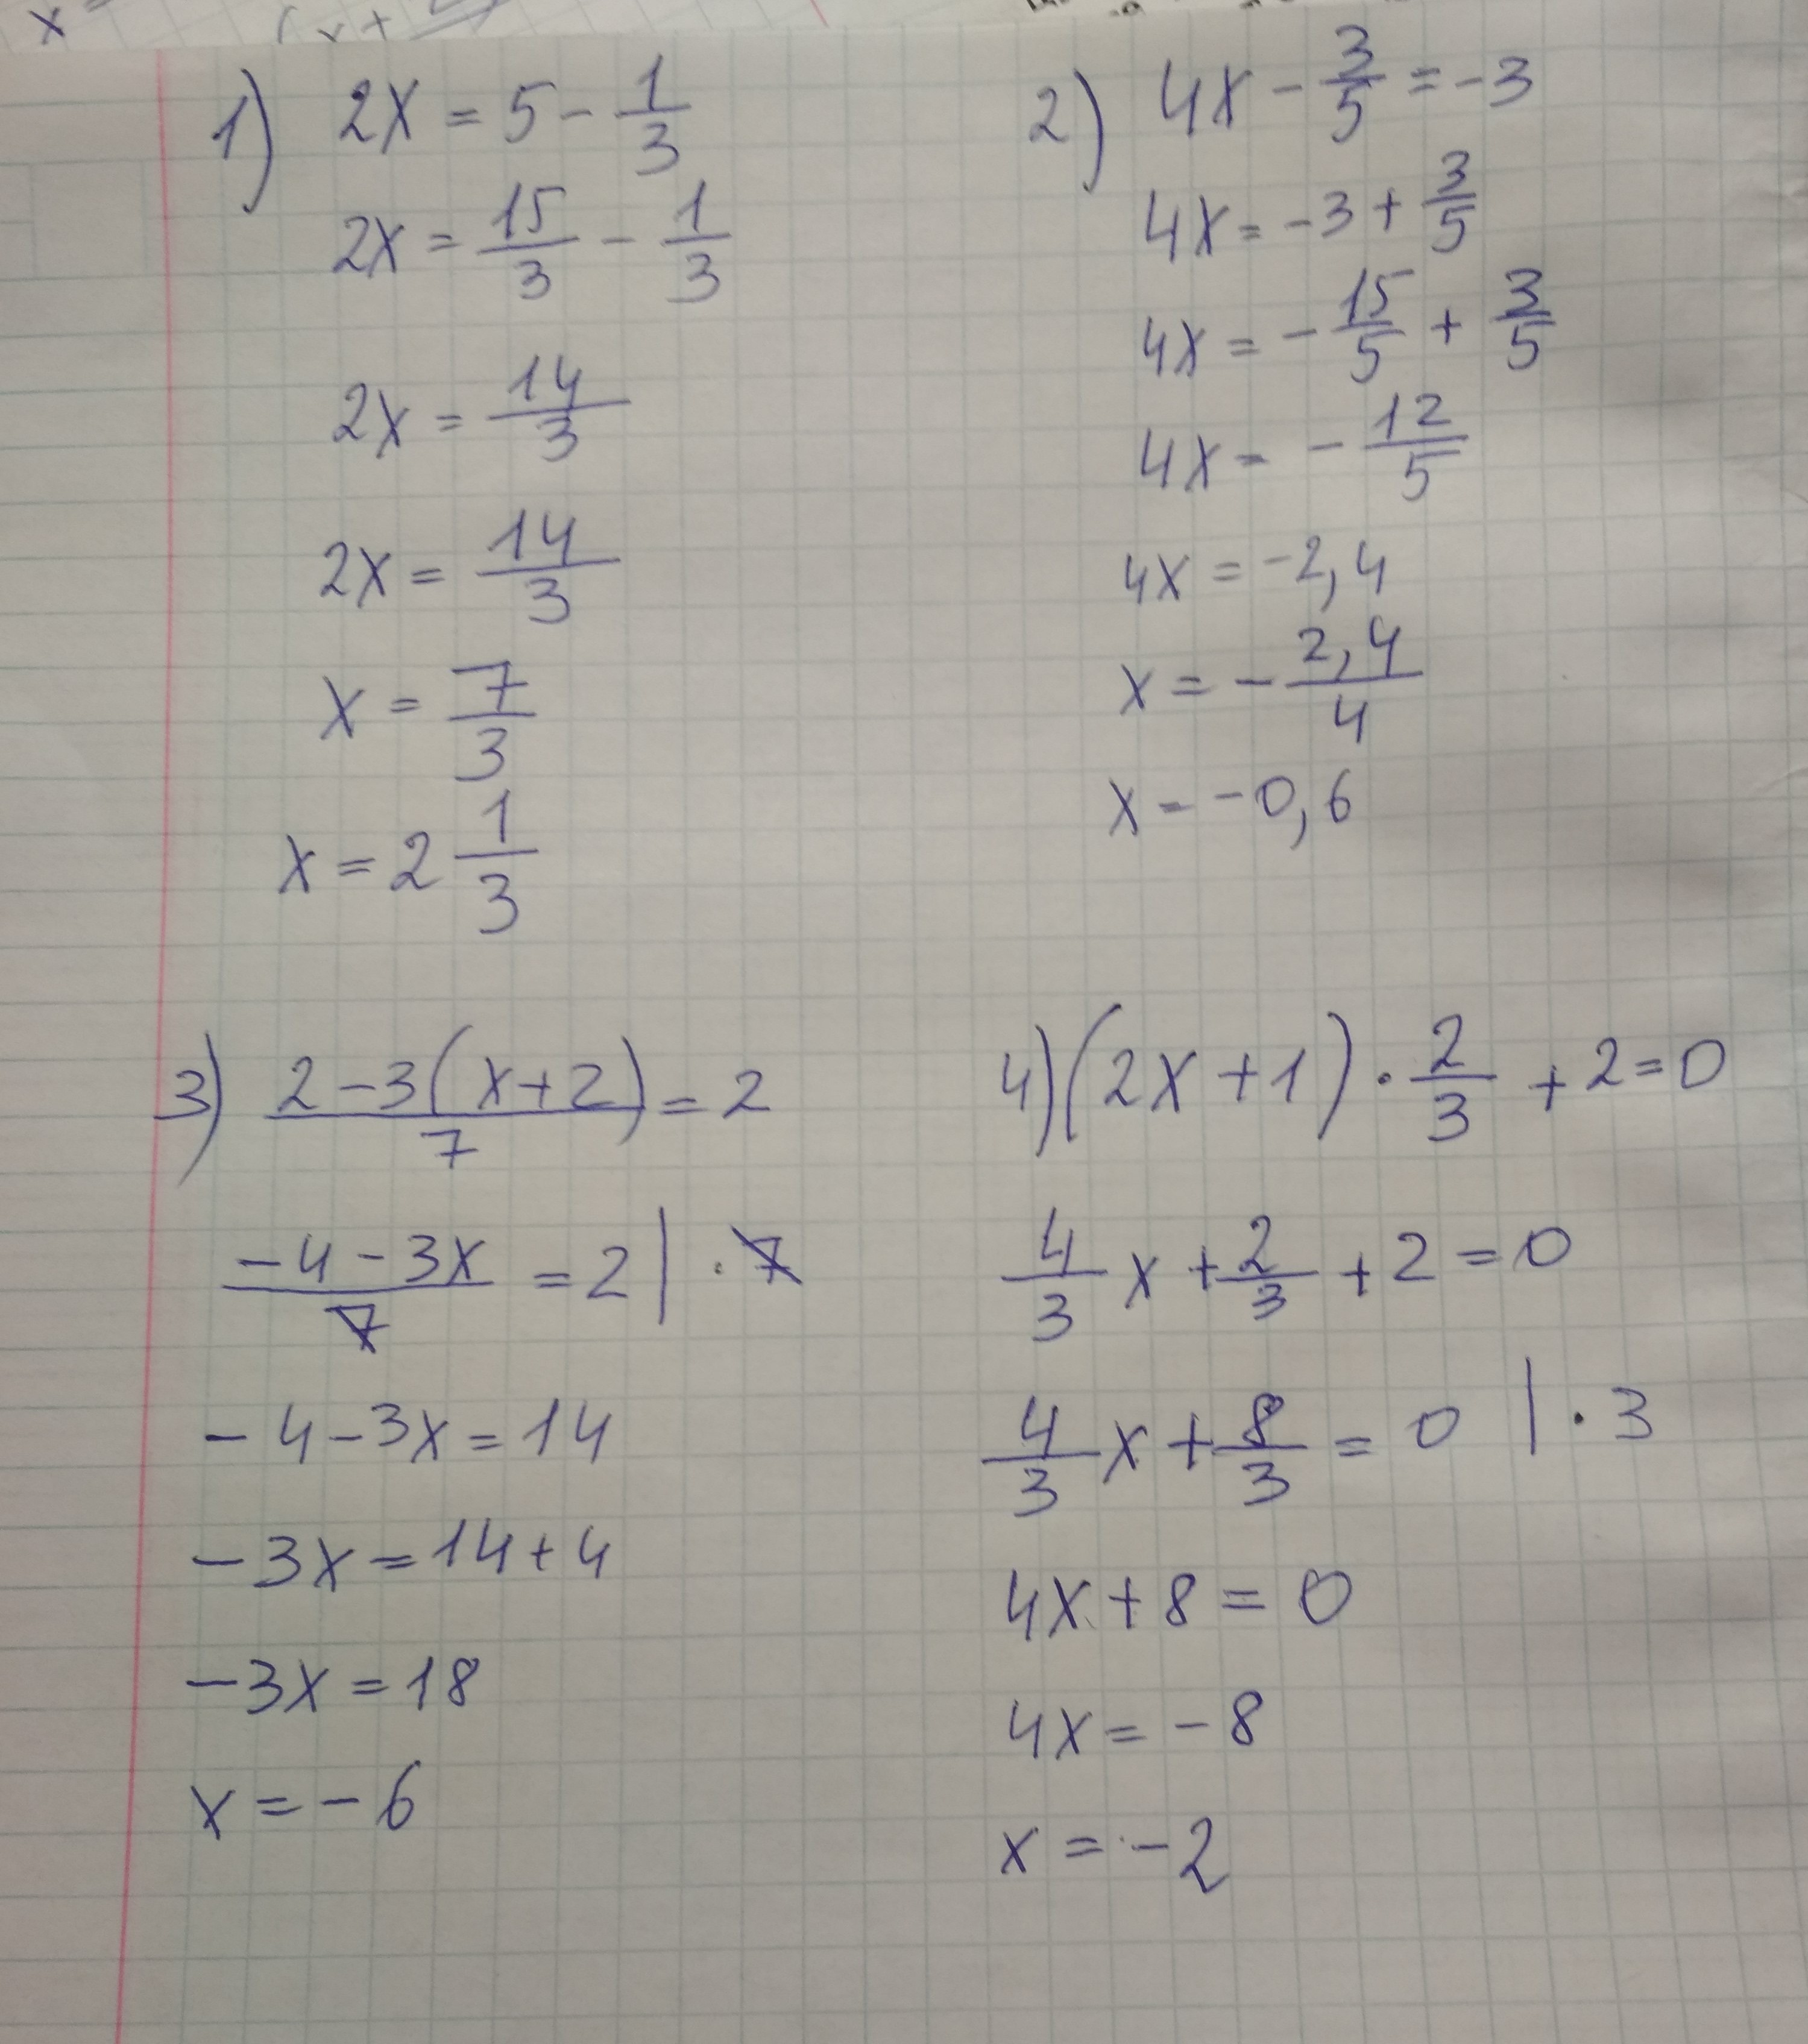 1) 2x = 5 - 1/3
2x = 15/3 - 1/3
2x = 14/3
2x = 14/3
x = 7/3
x = 2 1/3
2) 4x - 3/5 = -3
4x = -3 + 3/5
4x = -15/5 + 3/5
4x = -12/5
4x = -2,4
x = -2,4/4
x = -0,6
3) (2-3(x+2))/7 = 2
(-4-3x)/7 = 2 | · 7
-4-3x = 14
-3x = 14+4
-3x = 18
x = -6
4) (2x+1) · 2/3 + 2 = 0
4/3 x + 2/3 + 2 = 0
4/3 x + 8/3 = 0 | · 3
4x + 8 = 0
4x = -8
x = -2